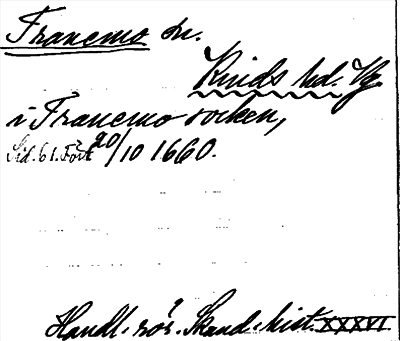 Tranemo sn.
Kinds hd. Vg.
i Tranemo socken,
Sid. 61. Fört 20/10 1660.
Handl. rör. Skand. hist. XXXVI